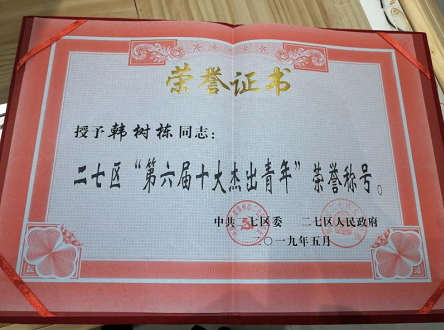 荣誉证书
授予韩树栋同志：
二七区“第六届十大杰出青年”荣誉称号。
中共二七区委 二七区人民政府
二〇一九年五月